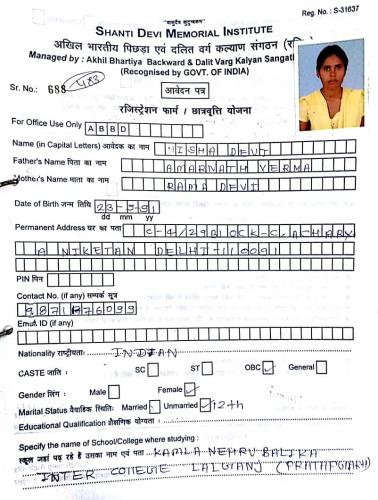 "वसुधैव कुटुम्बकम्"
Reg. No. : S-31637
SHANTI DEVI MEMORIAL INSTITUTE
अखिल भारतीय पिछड़ा एवं दलित वर्ग कल्याण संगठन
Managed by : Akhil Bhartiya Backward & Dalit Varg Kalyan Sangat
(Recognised by GOVT. OF INDIA)
Sr. No.: 688 483
आवेदन पत्र
रजिस्ट्रेशन फार्म / छात्रवृत्ति योजना
For Office Use Only ABBD
Name (in Capital Letters) आवेदक का नाम NISHA DEVI
Father's Name पिता का नाम AMARNATH VERMA
Mother's Name माता का नाम RAMA DEVI
Date of Birth जन्म तिथि 23-5-91
dd mm yy
Permanent Address घर का पता C-4/29 BLOCK-C, ACHARY
A NIKETAN DELHI-110091
PIN पिन
Contact No. (if any) सम्पर्क सूत्र
9871876099
Email ID (if any)
Nationality राष्ट्रीयता: INDIAN
CASTE जाति : SC ST OBC ✓ General
Gender लिंग : Male Female ✓
Marital Status वैवाहिक स्थिति: Married Unmarried ✓
Educational Qualification शैक्षणिक योग्यता : 12th
Specify the name of School/College where studying :
स्कूल जहां पढ़ रहे हैं उसका नाम एवं पता KAMLA NEHRU BALIKA
INTER COLLEGE LALGANJ (PRATAPGARH)